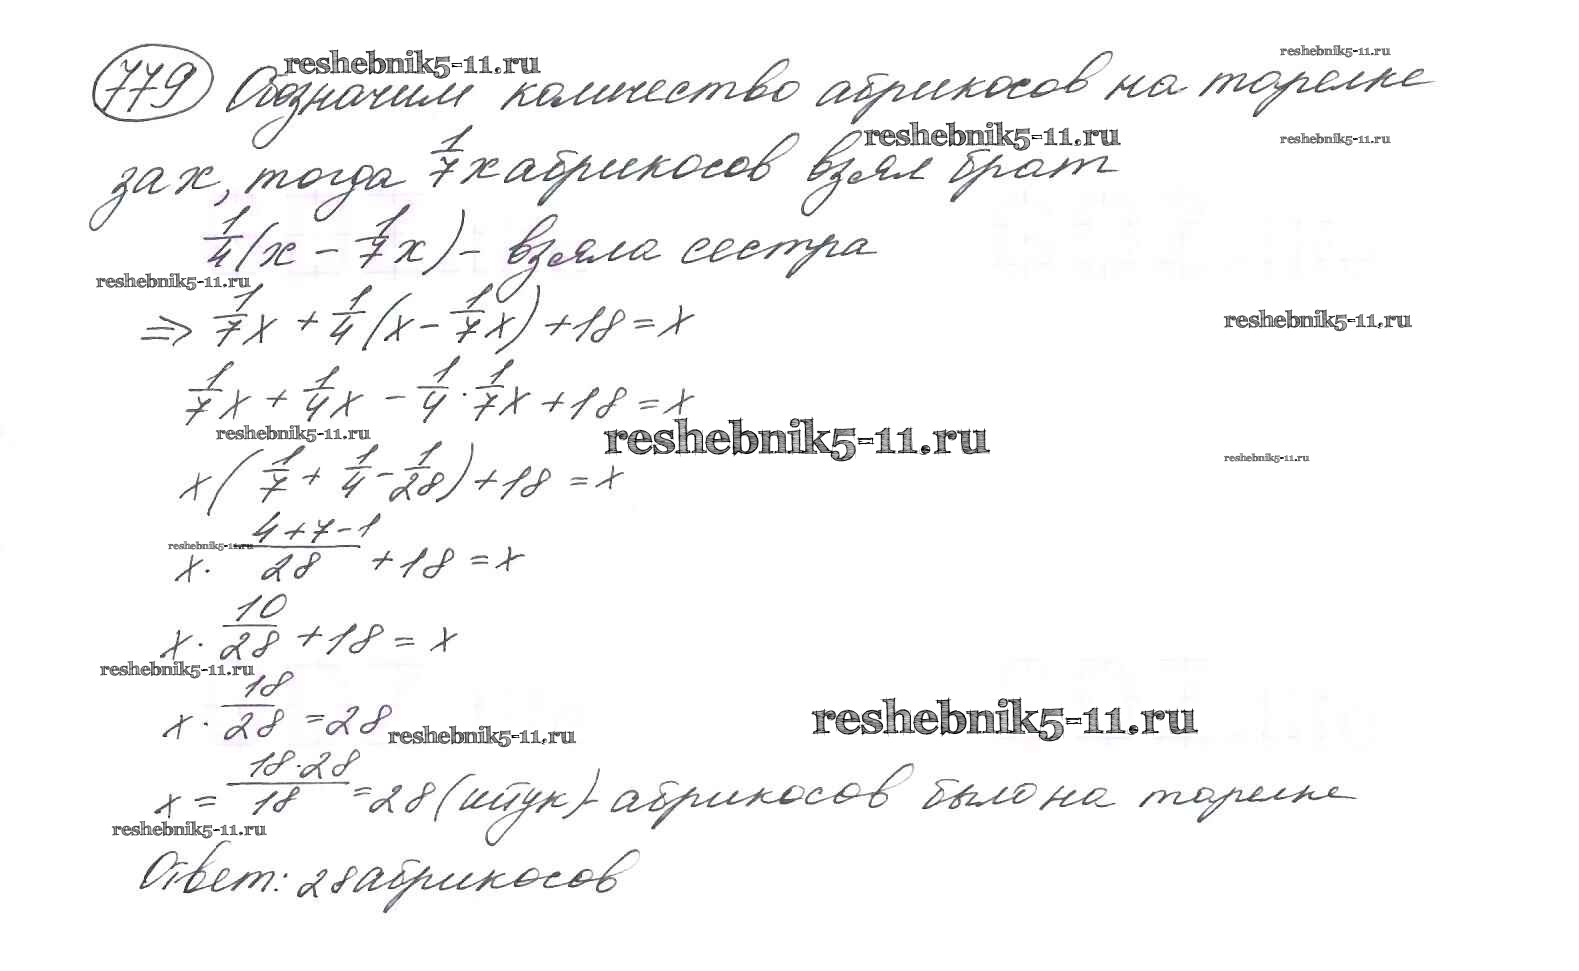 779 Обозначим количество абрикосов на тарелке
за x, тогда 1/7 x абрикосов взял брат
1/4 (x - 1/7 x) - взяла сестра
⇒ 1/7 x + 1/4 (x - 1/7 x) + 18 = x
1/7 x + 1/4 x - 1/4 · 1/7 x + 18 = x
x (1/7 + 1/4 - 1/28) + 18 = x
x · (4+7-1)/28 + 18 = x
x · 10/28 + 18 = x
x · 18/28 = 28
x = (18·28)/18 = 28 (штук) - абрикосов было на тарелке
Ответ: 28 абрикосов
reshebnik5-11.ru
reshebnik5-11.ru
reshebnik5-11.ru
reshebnik5-11.ru
reshebnik5-11.ru
reshebnik5-11.ru
reshebnik5-11.ru
reshebnik5-11.ru
reshebnik5-11.ru
reshebnik5-11.ru
reshebnik5-11.ru
reshebnik5-11.ru
reshebnik5-11.ru
reshebnik5-11.ru